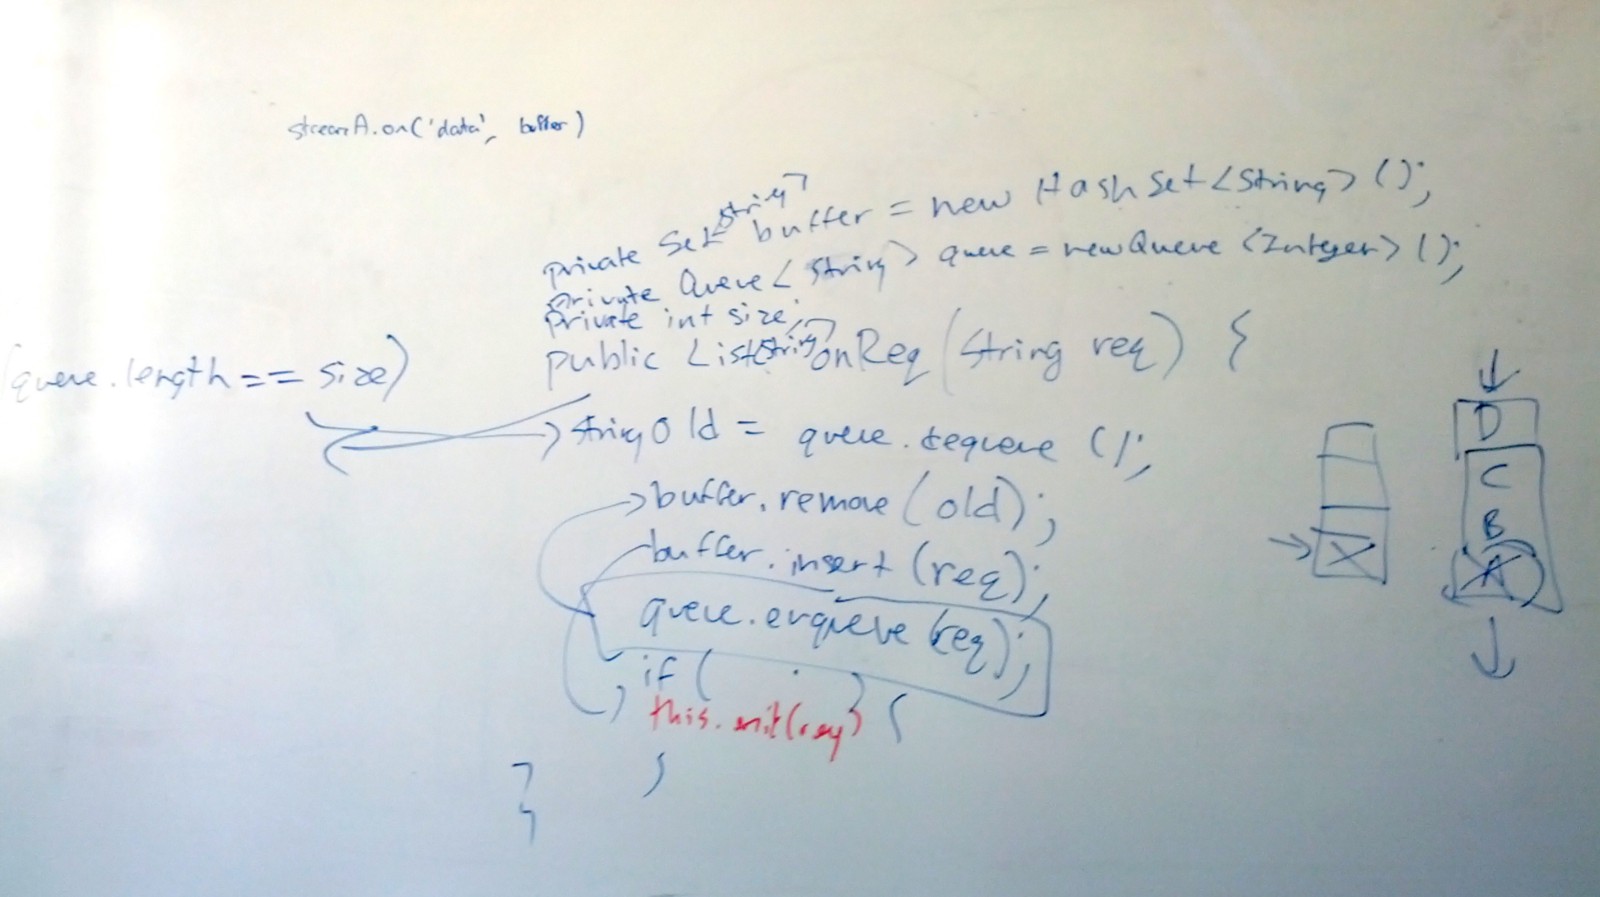 streamA.on('data', buffer)
private Set<String> buffer = new HashSet<String>();
private Queue<String> queue = new Queue<Integer>();
private int size;
public List<String> onReq(String req) {
(queue.length == size)
String old = queue.dequeue();
buffer.remove(old);
buffer.insert(req);
queue.enqueue(req);
if ( ) {
this.emit(req)
}
}
D
C
B
A
X